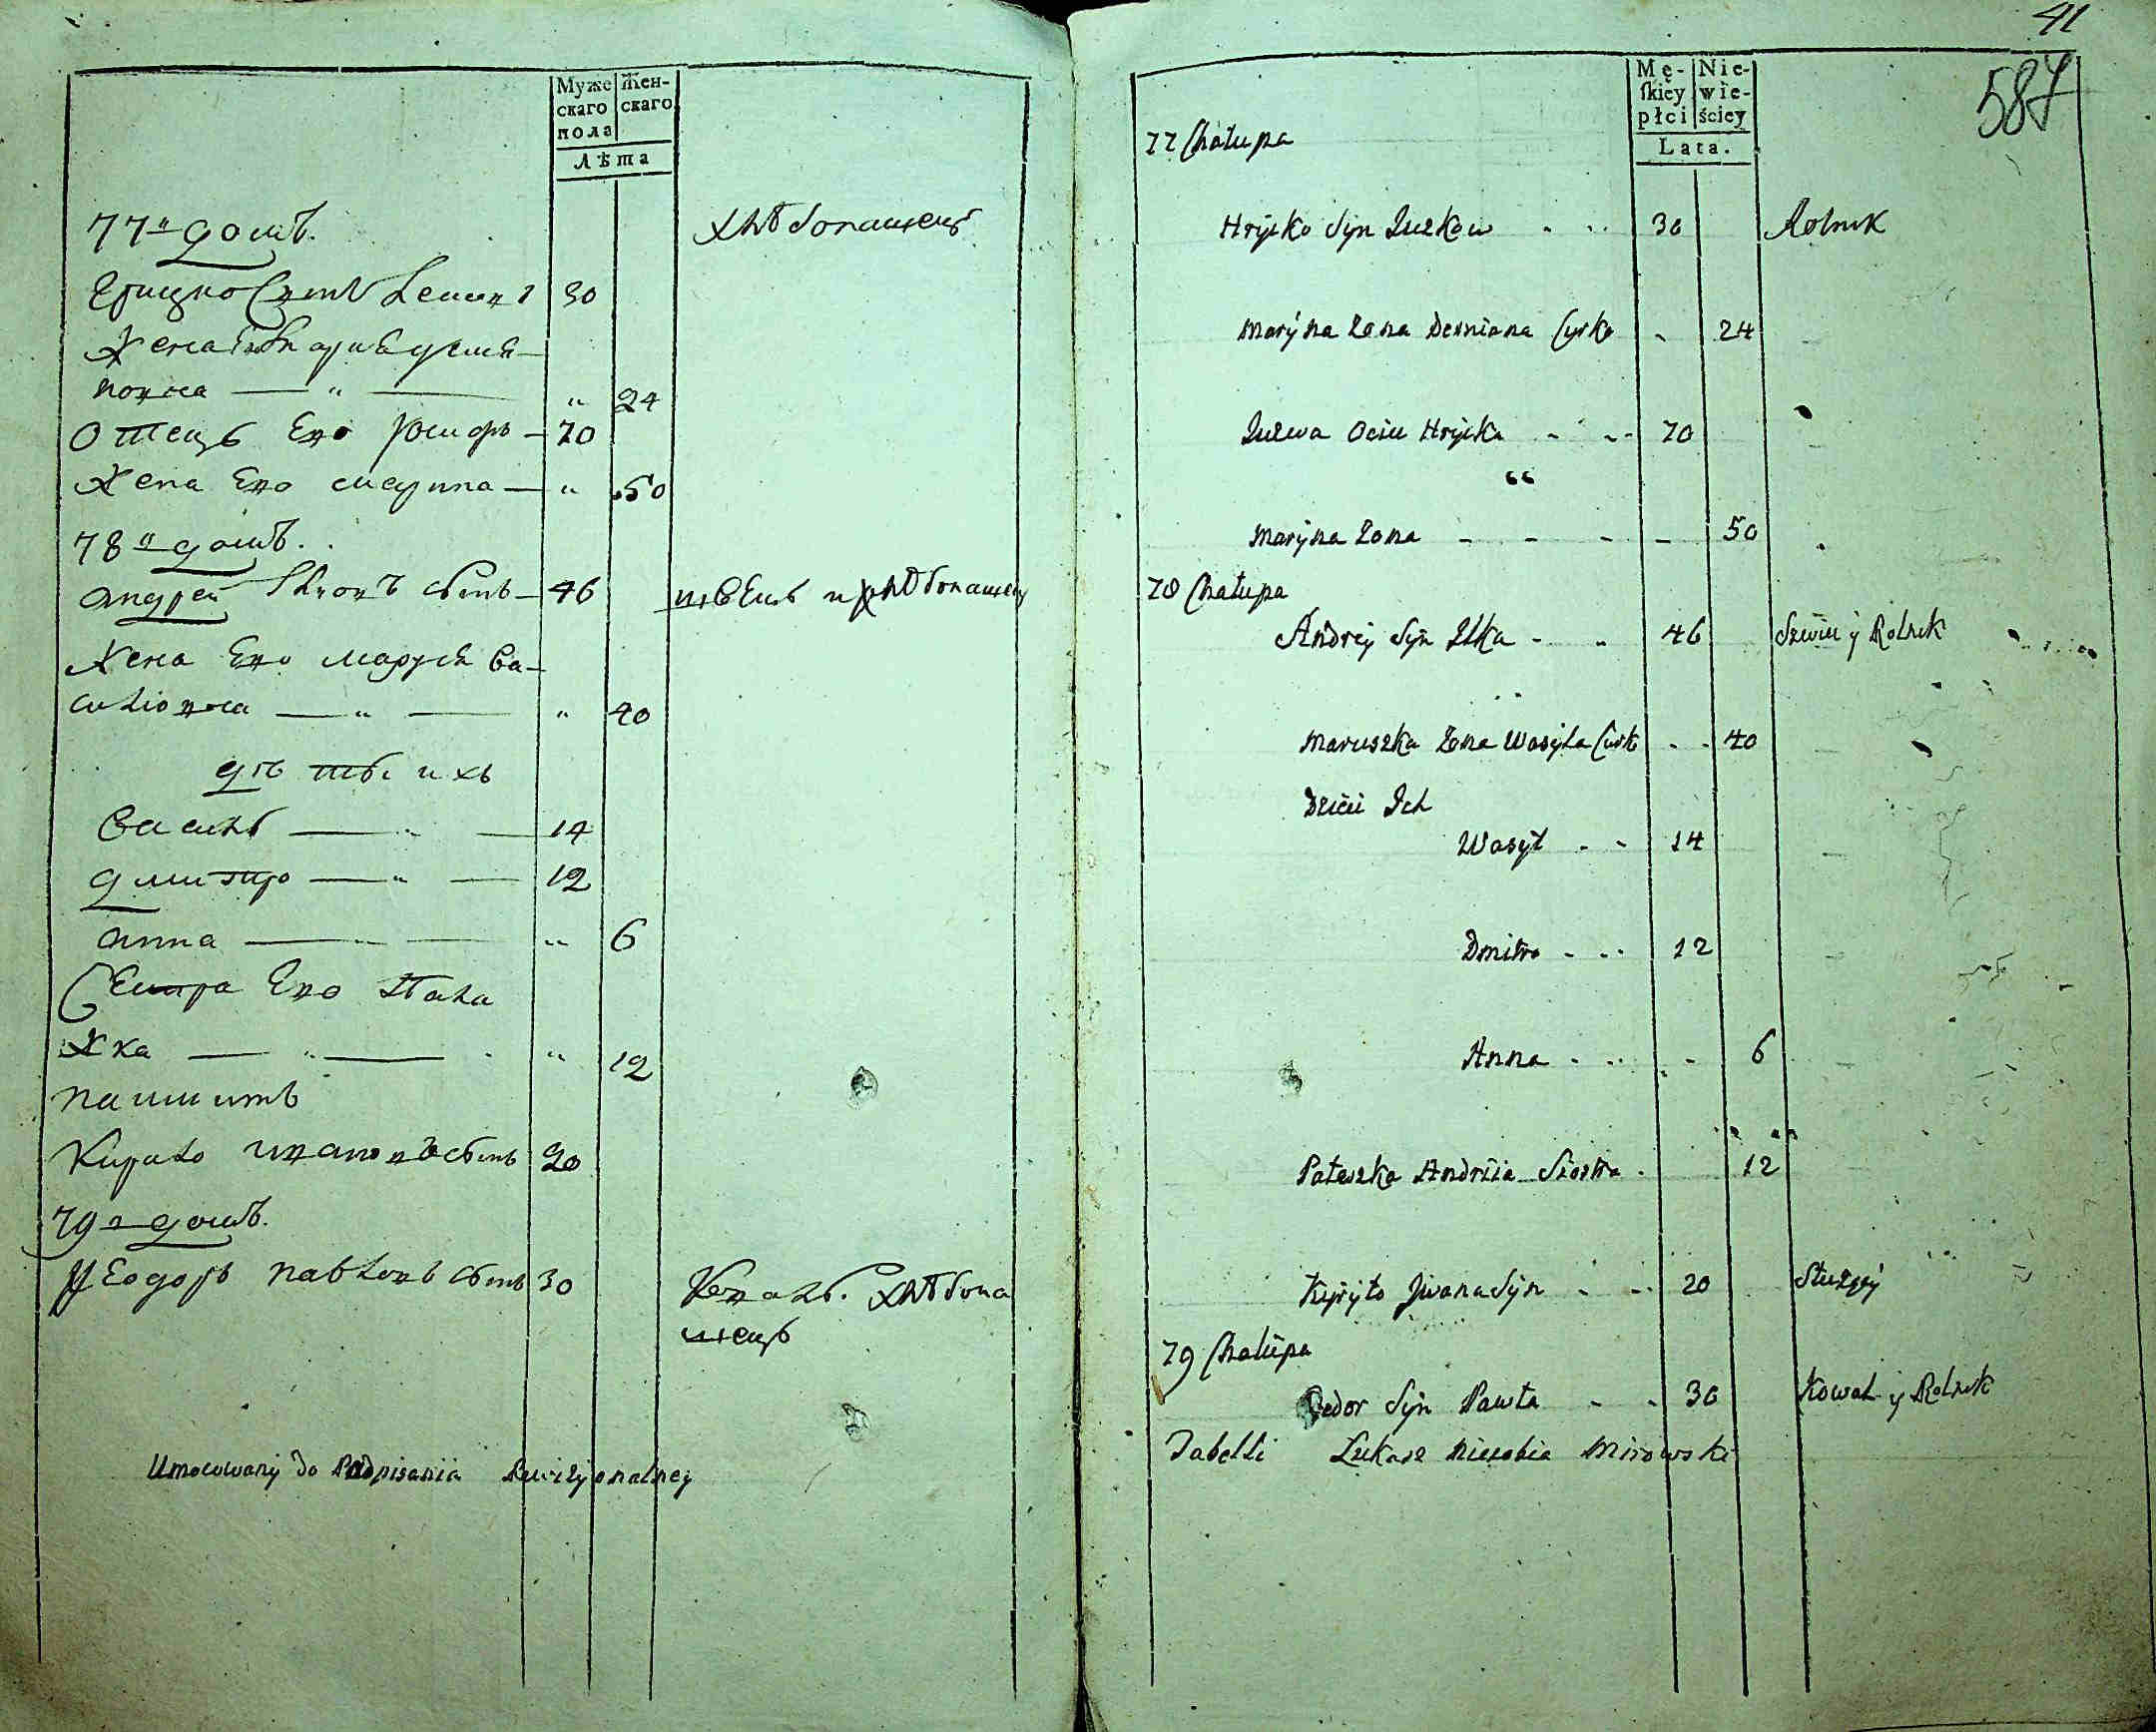 Муже
скаго
пола
Жен-
скаго
Лѣта
77й домъ.
хлѣбопашецъ
30
Жена Его
повна — " — " 24
Отецъ Его — 70
Жена Его марина — " 50
78й домъ.
Андрей сынъ — 46 швецъ и хлѣбопашец
Жена Его маруся Ва-
силіовна — " — " 40
дѣти ихъ
Василь — 14
дмитро — " — 12
Анна — " 6
Сестра Его Пала
жка — " — " 12
Кирило Ивановъ сынъ 20
79й домъ.
Ѳеодоръ Павловъ сынъ 30 Коваль. хлѣбопа
шецъ
Umocowany do Podpisania Rewizyonalney
41
587
Mę-
skiey
płci
Nie-
wie-
ściey
Lata.
77 Chałupa
Hryćko Syn 30 Rolnik
Maryna Żona Demiana Curka - 24
Ociec Hryćka 70
Maryna Żona - - - - 50
78 Chałupa
Andrey Syn Ilka - 46 Szwiec y Rolnik
Maruszka Żona Wasyla Curk - - 40
Dzieci Ich
Wasyl - - 14
Dmitro - - 12
Anna - - - 6
Pałaszka Andrija Siostra - 12
Kyryło Iwana Syn - - 20 Służący
79 Chałupa
Fedor Syn Pawła - - 30 Kowal y Rolnik
Tabelli Łukasz Mirowski